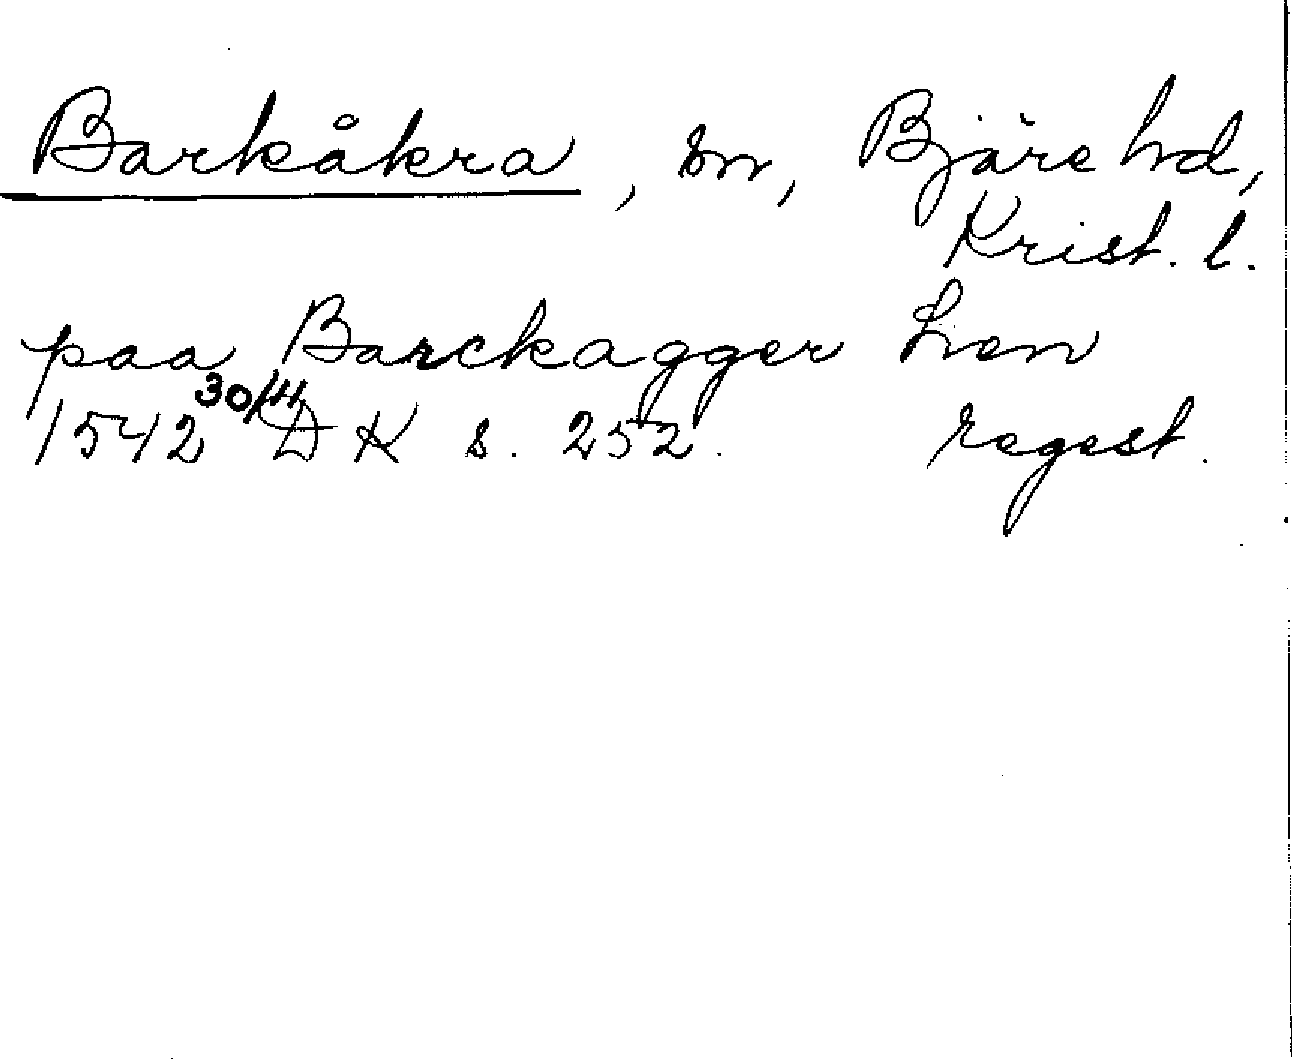 Barkåkra, sn, Bjäre hd,
Krist. l.
paa Barckagger Lien
1542 30/11 DK s. 252. regest.